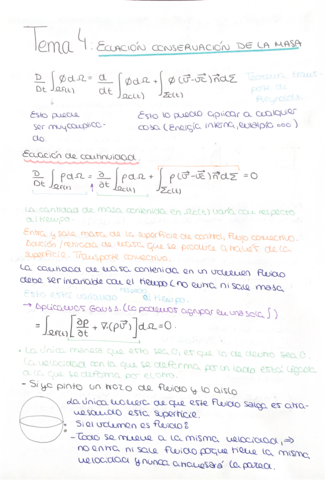 Tema 4: ECUACIÓN CONSERVACIÓN DE LA MASA
D/Dt ∫Ωf(t) φdΩ = d/dt ∫Ωc(t) φdΩ + ∫Σc(t) φ(v⃗-v⃗c)n⃗dΣ
Teorema transporte de Reynolds.
Esto puede ser muy complicado
Esto lo puedo aplicar a cualquier cosa (Energía interna,
Ecuación de continuidad
D/Dt ∫Ωf(t) ρdΩ = ∂/∂t ∫Ωc(t) ρdΩ + ∫Σc(t) ρ(v⃗-v⃗c)n⃗dΣ = 0
La cantidad de masa contenida en Ωf(t) varía con respecto
al tiempo.
Entra y sale masa de la superficie de control, flujo convectivo.
de masa que se produce a través de la
superficie. Transporte convectivo.
La cantidad de masa contenida en un volumen fluido
debe ser invariable con el tiempo (no entra ni sale masa
Esto está variando respecto al tiempo.
→ Aplicamos Gauss. (Lo podemos agrupar en una sola ∫)
= ∫Ωf(t) [∂ρ/∂t + ∇·(ρv⃗)] dΩ = 0.
• La única manera que esto sea 0, es que lo de dentro sea 0.
La velocidad con la que se deforma por un lado está ligada
a la que se deforma por el otro.
- Si yo pinto un trozo de fluido y lo aíslo
La única manera de que este fluido salga es atravesando esta superficie.
- Si el volumen es fluido?
- Todo se mueve a la misma velocidad, ⇒
no entra ni sale fluido porque tiene la misma
velocidad y nunca atravesará la pared.